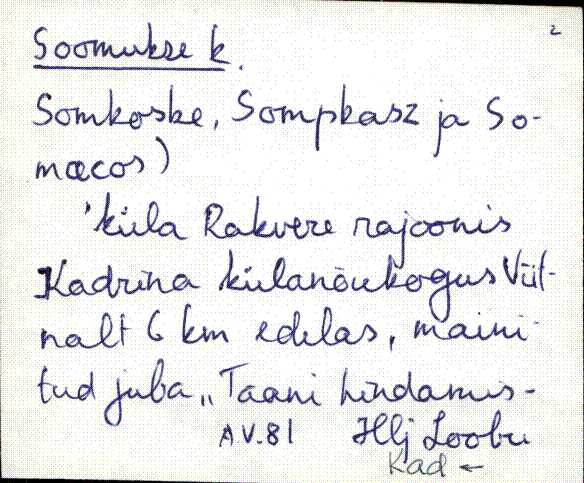 2
Soomukse k.
Somkoske, Sompkasz ja So-
mæcos)
'küla Rakvere rajoonis
Kadrina külanõukogus Viit-
nalt 6 km edelas, maini-
tud juba „Taani hindamis-
AV.81 Hlj Loobu
Kad ←